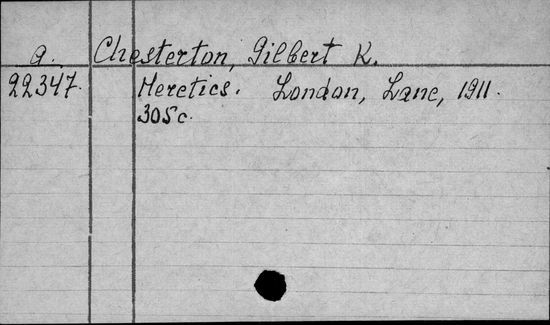 a. Chesterton, Gilbert K.
22347. Heretics. London, Lane, 1911.
305c.